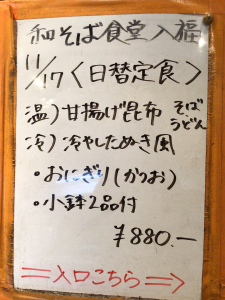 和そば食堂 入福
11/17 〈日替定食〉
温) 甘揚げ昆布 そば うどん
冷) 冷やしたぬき風
・おにぎり(かつお)
・小鉢2品付
¥880.―
⇒入口こちら⇒